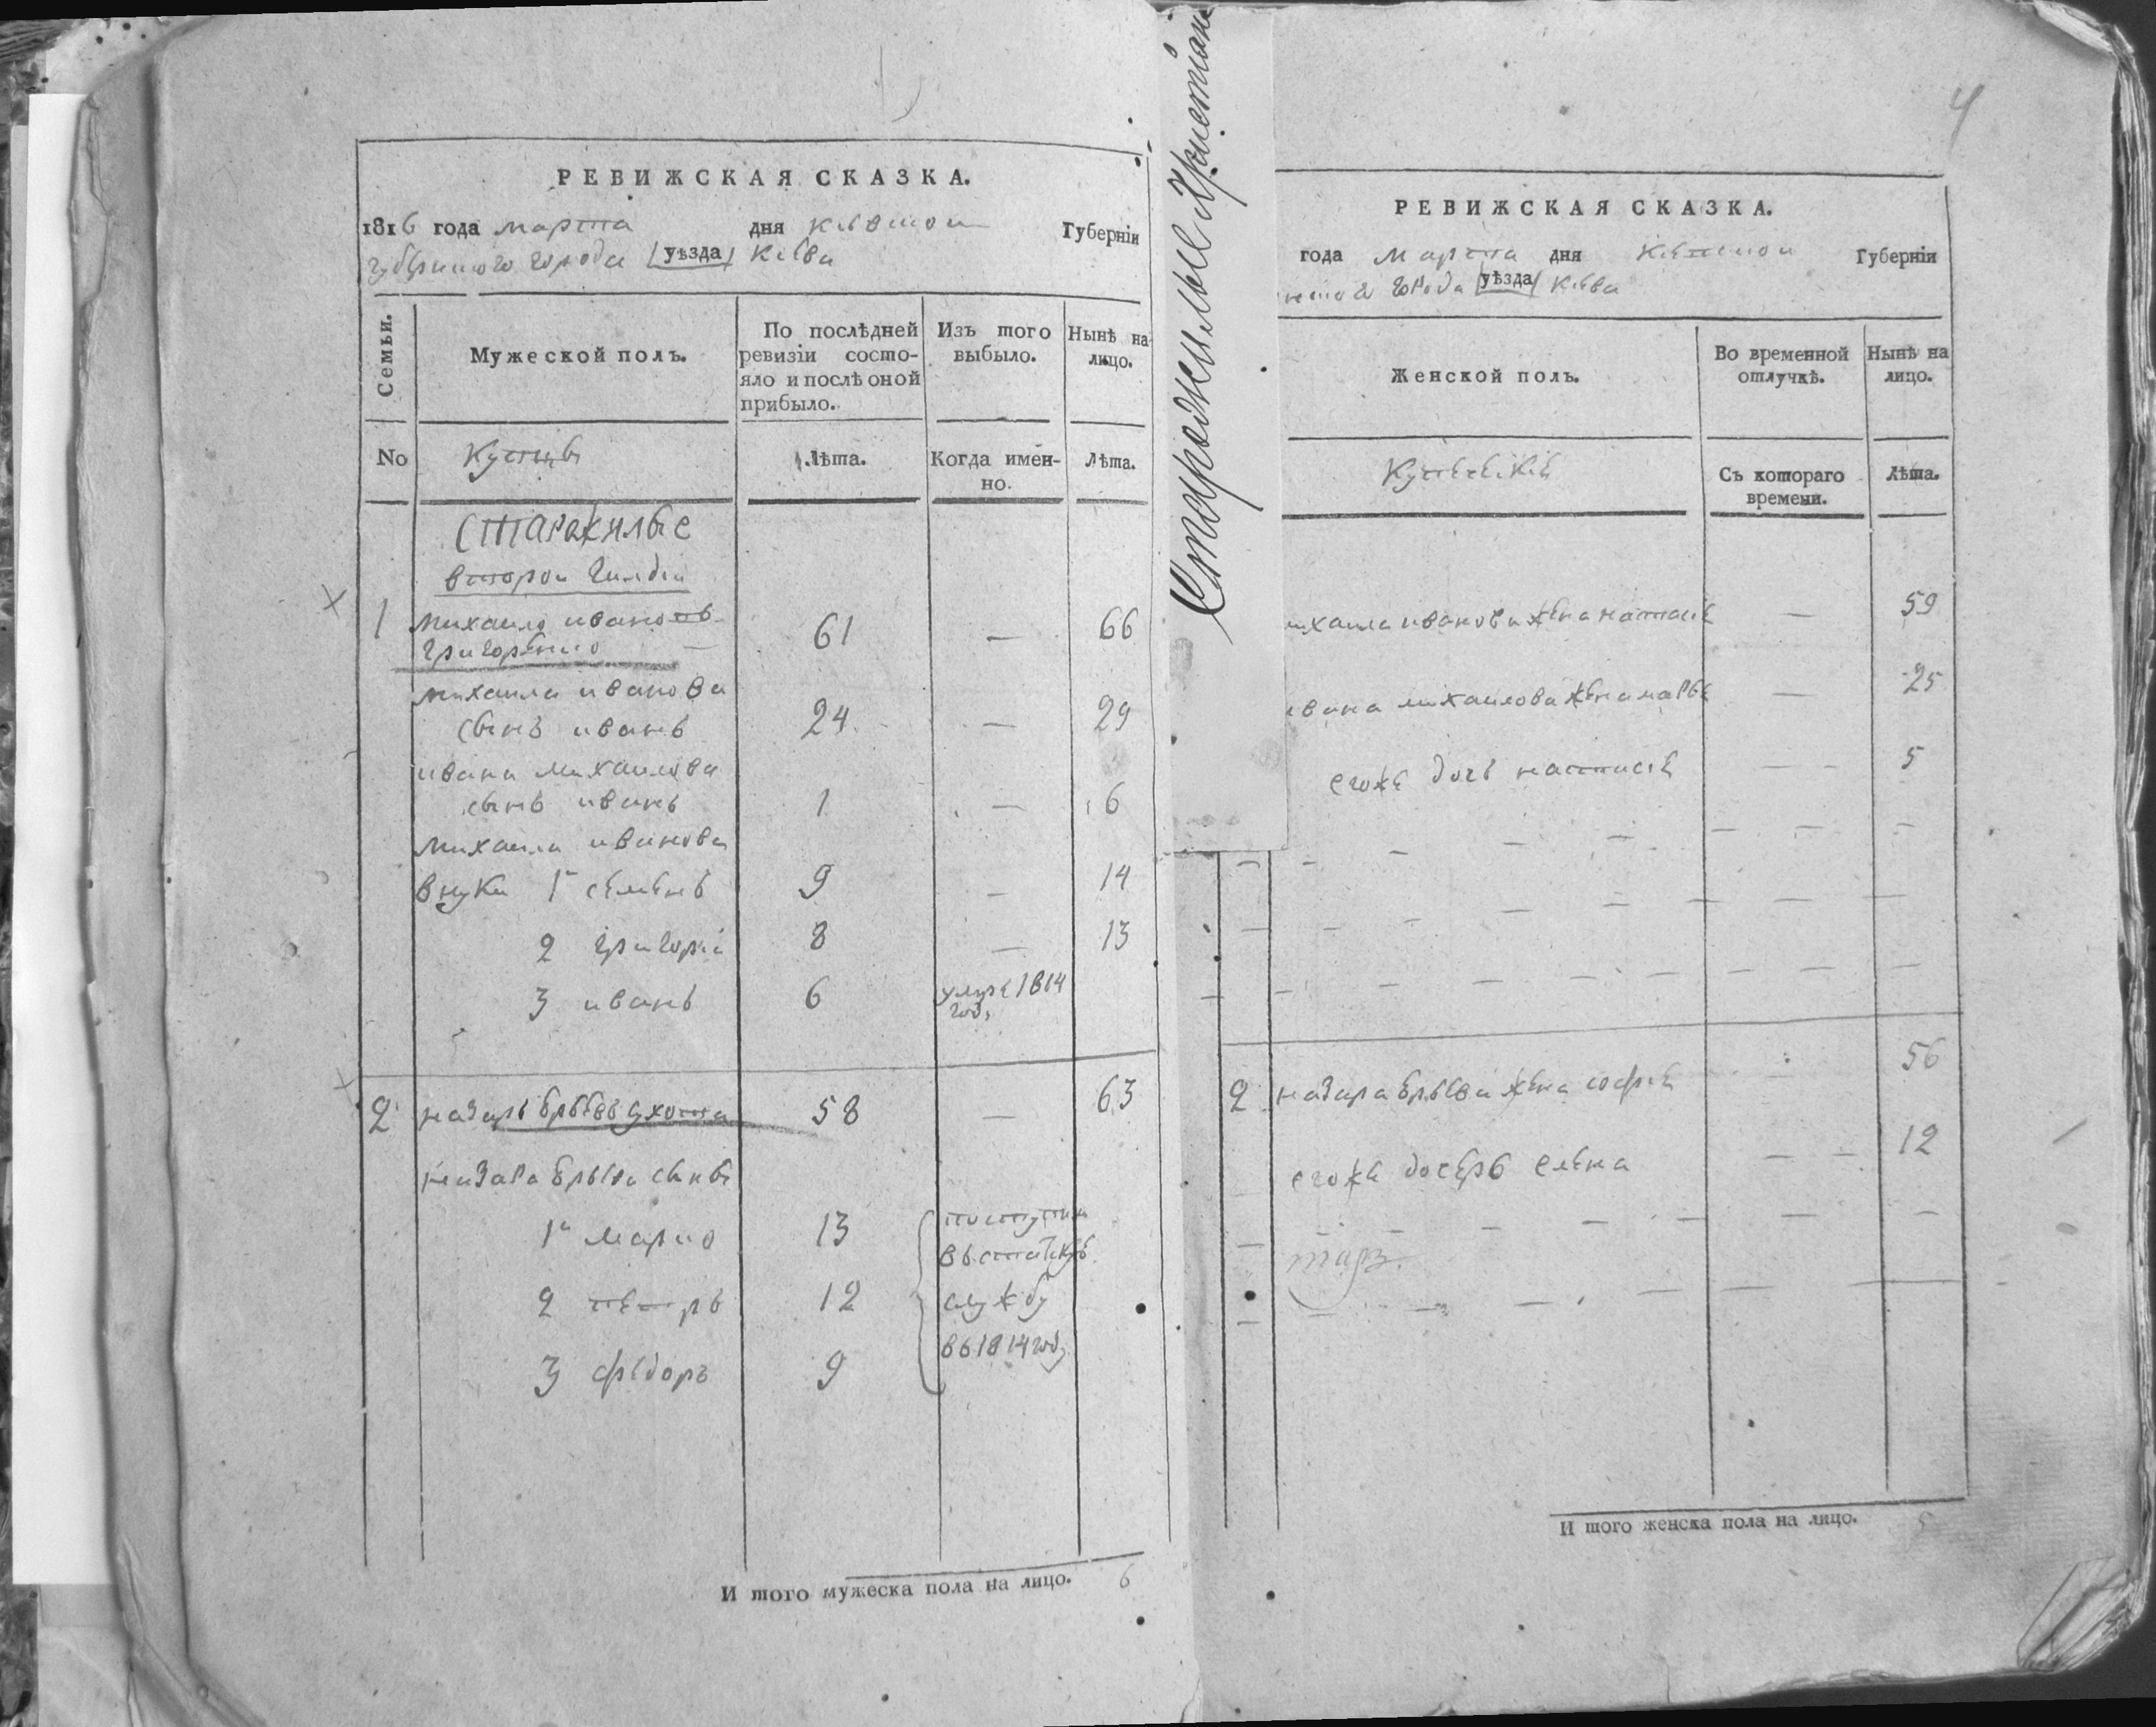 РЕВИЖСКАЯ СКАЗКА.
1816 года марта дня Киевской Губерніи
губернского города уѣзда Киева
Семьи.
Мужеской полъ.
По послѣдней ревизіи состо-
яло и послѣ оной
прибыло.
Изъ того
выбыло.
Нынѣ на
лицо.
No
Купцы
Лѣта.
Когда имен-
но.
Лѣта.
Старожилые
второй гилдіи
1 михаило ивановъ 61 — 66
григоренко
михаила иванова
сынъ иванъ 24 — 29
ивана михаилова
сынъ иванъ 1 — 6
михаила иванова
внуки 1й семенъ 9 — 14
2 григорій 8 — 13
3 иванъ 6 умре 1814
году
2 назаръ 58 — 63
назара сыны
1й марко 13 поступили
въ статскую
2 петръ 12 службу
въ 1814 году
3 федоръ 9
И того мужеска пола на лицо. 6
Старожилые Христіане
4
РЕВИЖСКАЯ СКАЗКА.
года марта дня Киевской Губерніи
города уѣзда Киева
Женской полъ.
Во временной
отлучкѣ.
Нынѣ на
лицо.
Купеческіе
Съ котораго
времени.
Лѣта.
михаила иванова жена настасіе — 59
ивана михаилова жена марье — 25
егоже дочь настасіе — 5
2 назара жена софіе 56
егоже дочерь елена — 12
И того женска пола на лицо. 5